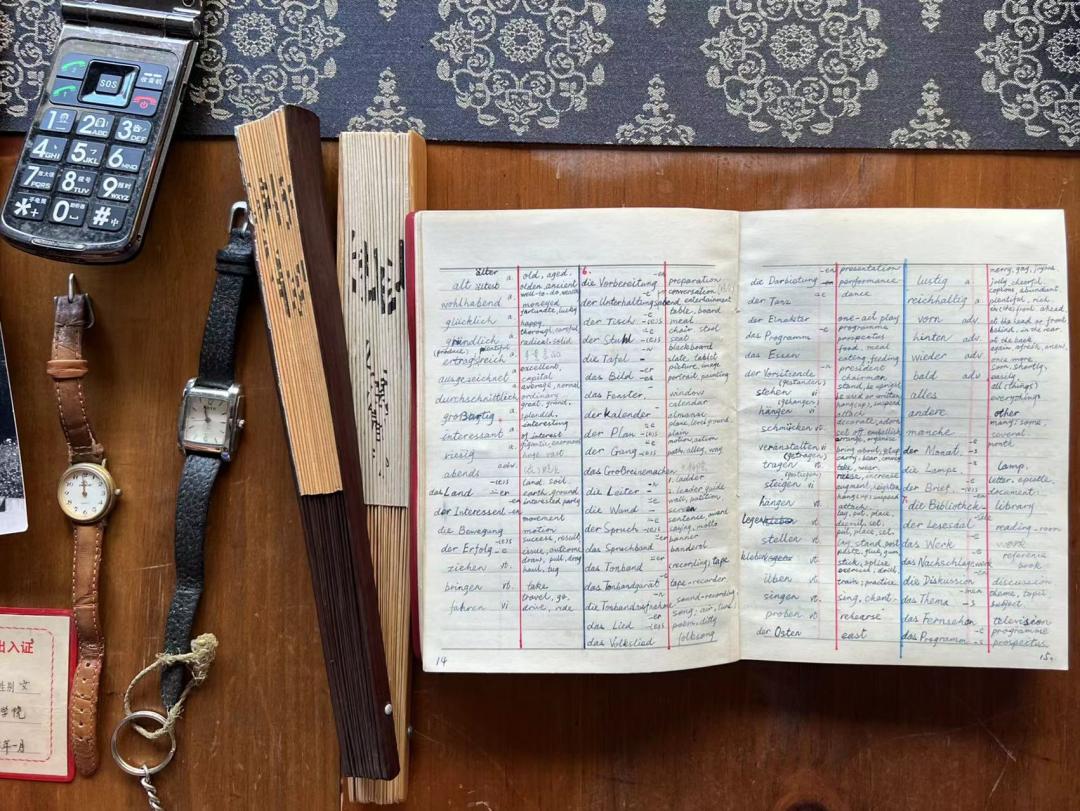 SOS
收音机
1
2 ABC
3 DEF
4 GHI
5 JKL
6 MNO
7 PQRS
8 TUV
9 WXYZ
*+
0
#
出入证
性别 女
学院
年一月
älter
alt ältest a. old, aged.
olden, ancient
wohlhabend a. well-to-do, moneyed
glücklich a. fortunate, lucky
happy
gründlich a. thorough, careful
radical, solid
ertragreich a.
ausgezeichnet a. excellent,
capital
durchschnittlich a. average, normal
ordinary
großartig a. great, grand,
splendid,
interessant a. interesting
of interest
riesig a. gigantic, enormous
huge vast
abends adv.
das Land -(e)s -er land, soil,
earth, ground
der Interessent -en interested party
die Bewegung -en movement
motion
der Erfolg -(e)s -e success, result
issue, outcome
ziehen vt. draw, pull, drag
haul, tug
bringen vt. take
fahren vi travel, go,
drive, ride
14
6.
die Vorbereitung -en preparation
der Unterhaltungsabend conversation, entertainment
der Tisch -(e)s -e table, board
meal
der Stuhl -(e)s -e chair stool
seat
die Tafel -n blackboard
slate, tablet
das Bild -(e)s -er picture, image
portrait, painting
das Fenster, - window
der Kalender - calendar
almanac
der Plan -(e)s -e plane, level ground,
plain
der Gang -(e)s -e motion, action
path, alley, way
das Großreinemachen
die Leiter - 1. ladder
2. leader guide
die Wand -e wall, partition,
screen
der Spruch -(e)s -e sentence, award
saying, motto
das Spruchband -er banner
banderol
das Tonband -er (recording) tape
das Tonbandgerät -e tape-recorder
die Tonbandaufnahme -n sound-recording
das Lied -(e)s -er song, air, tune
poem, ditty
das Volkslied folksong
die Darbietung -en presentation
performance
der Tanz -e dance
der Einakter one-act play
das Programm -e programme
prospectus
das Essen food, meal
eating, feeding
der Vorsitzende president
chairman
stehen (gestanden) stand, be upright
hängen (gehangen) hang(up), suspend
attach
schmücken vt decorate, adorn
set off, embellish
veranstalten vt arrange, organise
bring about, get up
tragen (getragen) vt. carry, bear, convey
take, wear
steigen (gestiegen) vi raise, increase
augment, heighten
hängen vt. hang(up) suspend
attach
legen vt lay, put, place,
stellen vt. put, place, set,
kleben paste, glue, gum
stick, splice
üben vt. exercise, drill
train; practise
singen vt. sing, chant
proben vt. rehearse
der Osten east
lustig a merry, gay, joyous
jolly, cheerful
reichhaltig a copious, abundant,
plentiful, rich
vorn adv. ahead,
at the head or front
hinten adv. behind, in the rear
at the back
wieder adv again, afresh, anew,
once more
bald adv soon, shortly,
easily
alles all (things)
everything
andere other
manche many; some,
several
der Monat -s -e month
die Lampe -n lamp,
der Brief -(e)s -e letter, epistle,
document
7.
die Bibliothek -en library
der Lesesaal reading-room
das Werk -e work
das Nachschlagewerk reference
book
die Diskussion -en discussion
das Thema -s theme, topic
subject
das Fernsehen television
das Programm -s programme
prospectus
15.